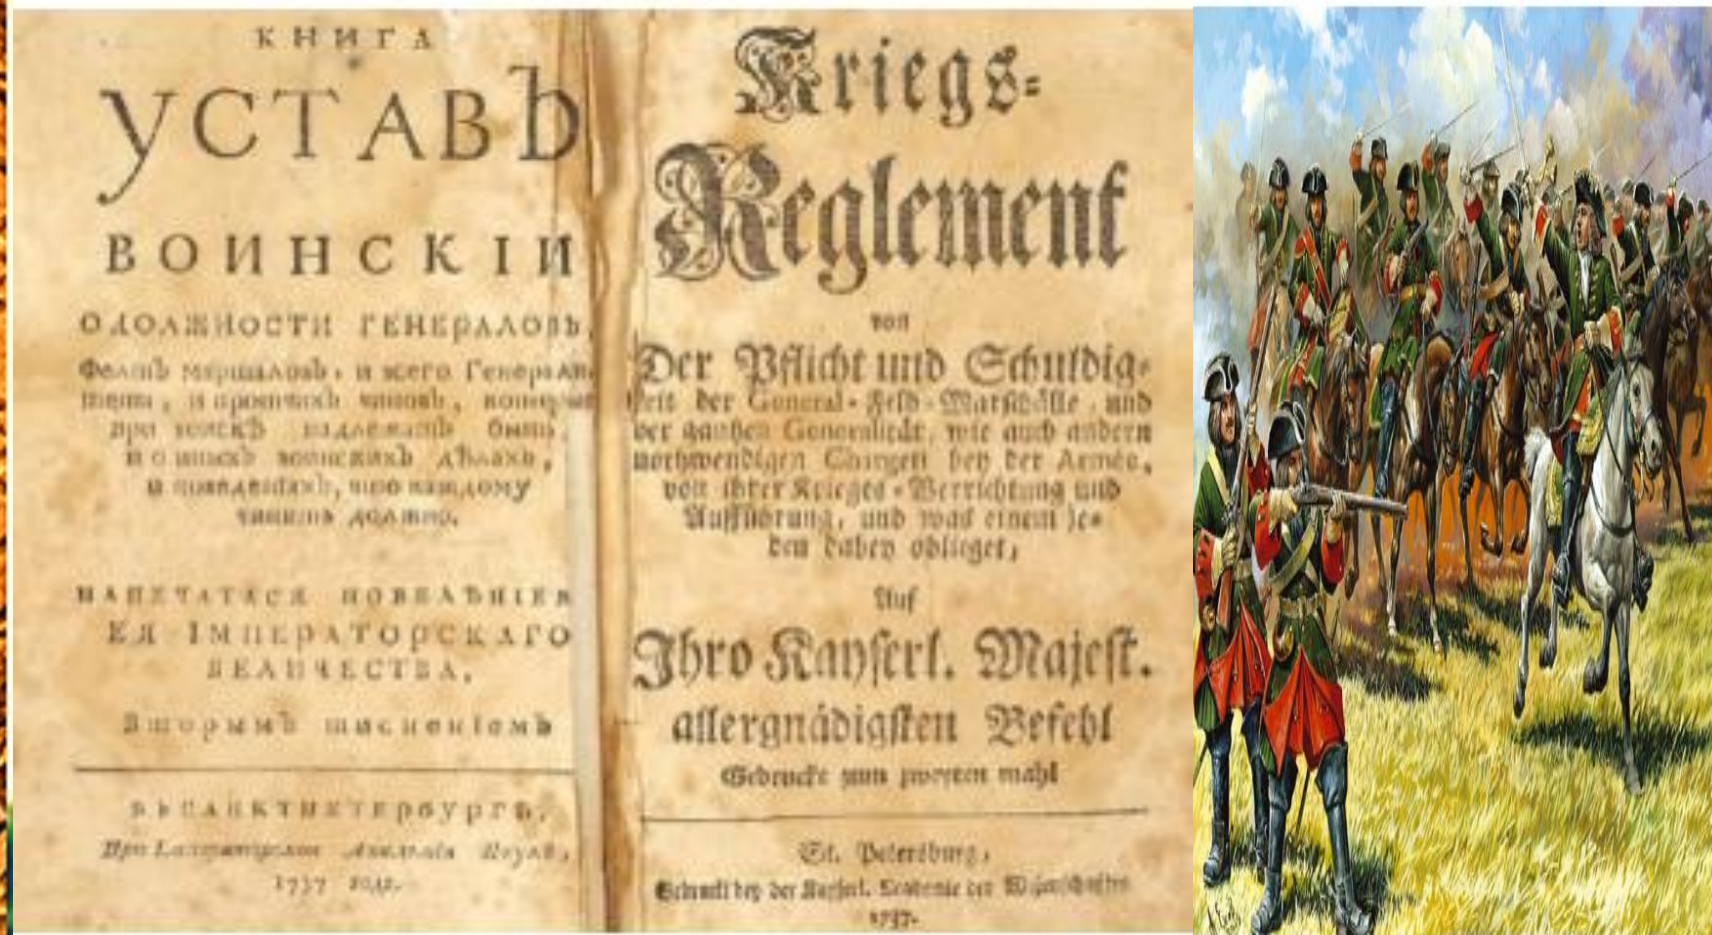 КНИГА
УСТАВЪ
ВОИНСКІИ
О ДОЛЖНОСТИ ГЕНЕРАЛОВЪ,
Фелтъ маршаловъ, и всего Генерали
тета, и протчихъ чиновъ, которые
при воискѣ надлежатъ быть,
и о иныхъ воинскихъ дѣлахъ,
и поведенїяхъ, что каждому
чинить должно.
НАПЕЧАТАСЯ ПОВЕЛѢНІЕМ
ЕЯ ІМПЕРАТОРСКАГО
ВЕЛИЧЕСТВА,
Вторымъ тисненїемъ
ВЪ САНКТПЕТЕРБУРГѢ,
При Академїи Наукъ,
1737 года.
Kriegs=
Reglement
von
Der Pflicht und Schuldig=
keit der General-Feld-Marschälle, und
der gantzen Generalität, wie auch andern
nothwendigen Chargen bey der Armée,
von ihrer Krieges-Verrichtung und
Aufführung, und was einem je=
den dabey oblieget,
Auf
Ihro Kayserl. Majest.
allergnädigsten Befehl
Gedruckt zum zweyten mahl
St. Petersburg,
Gedruckt bey der Kayserl. Academie der Wissenschafften
1737.